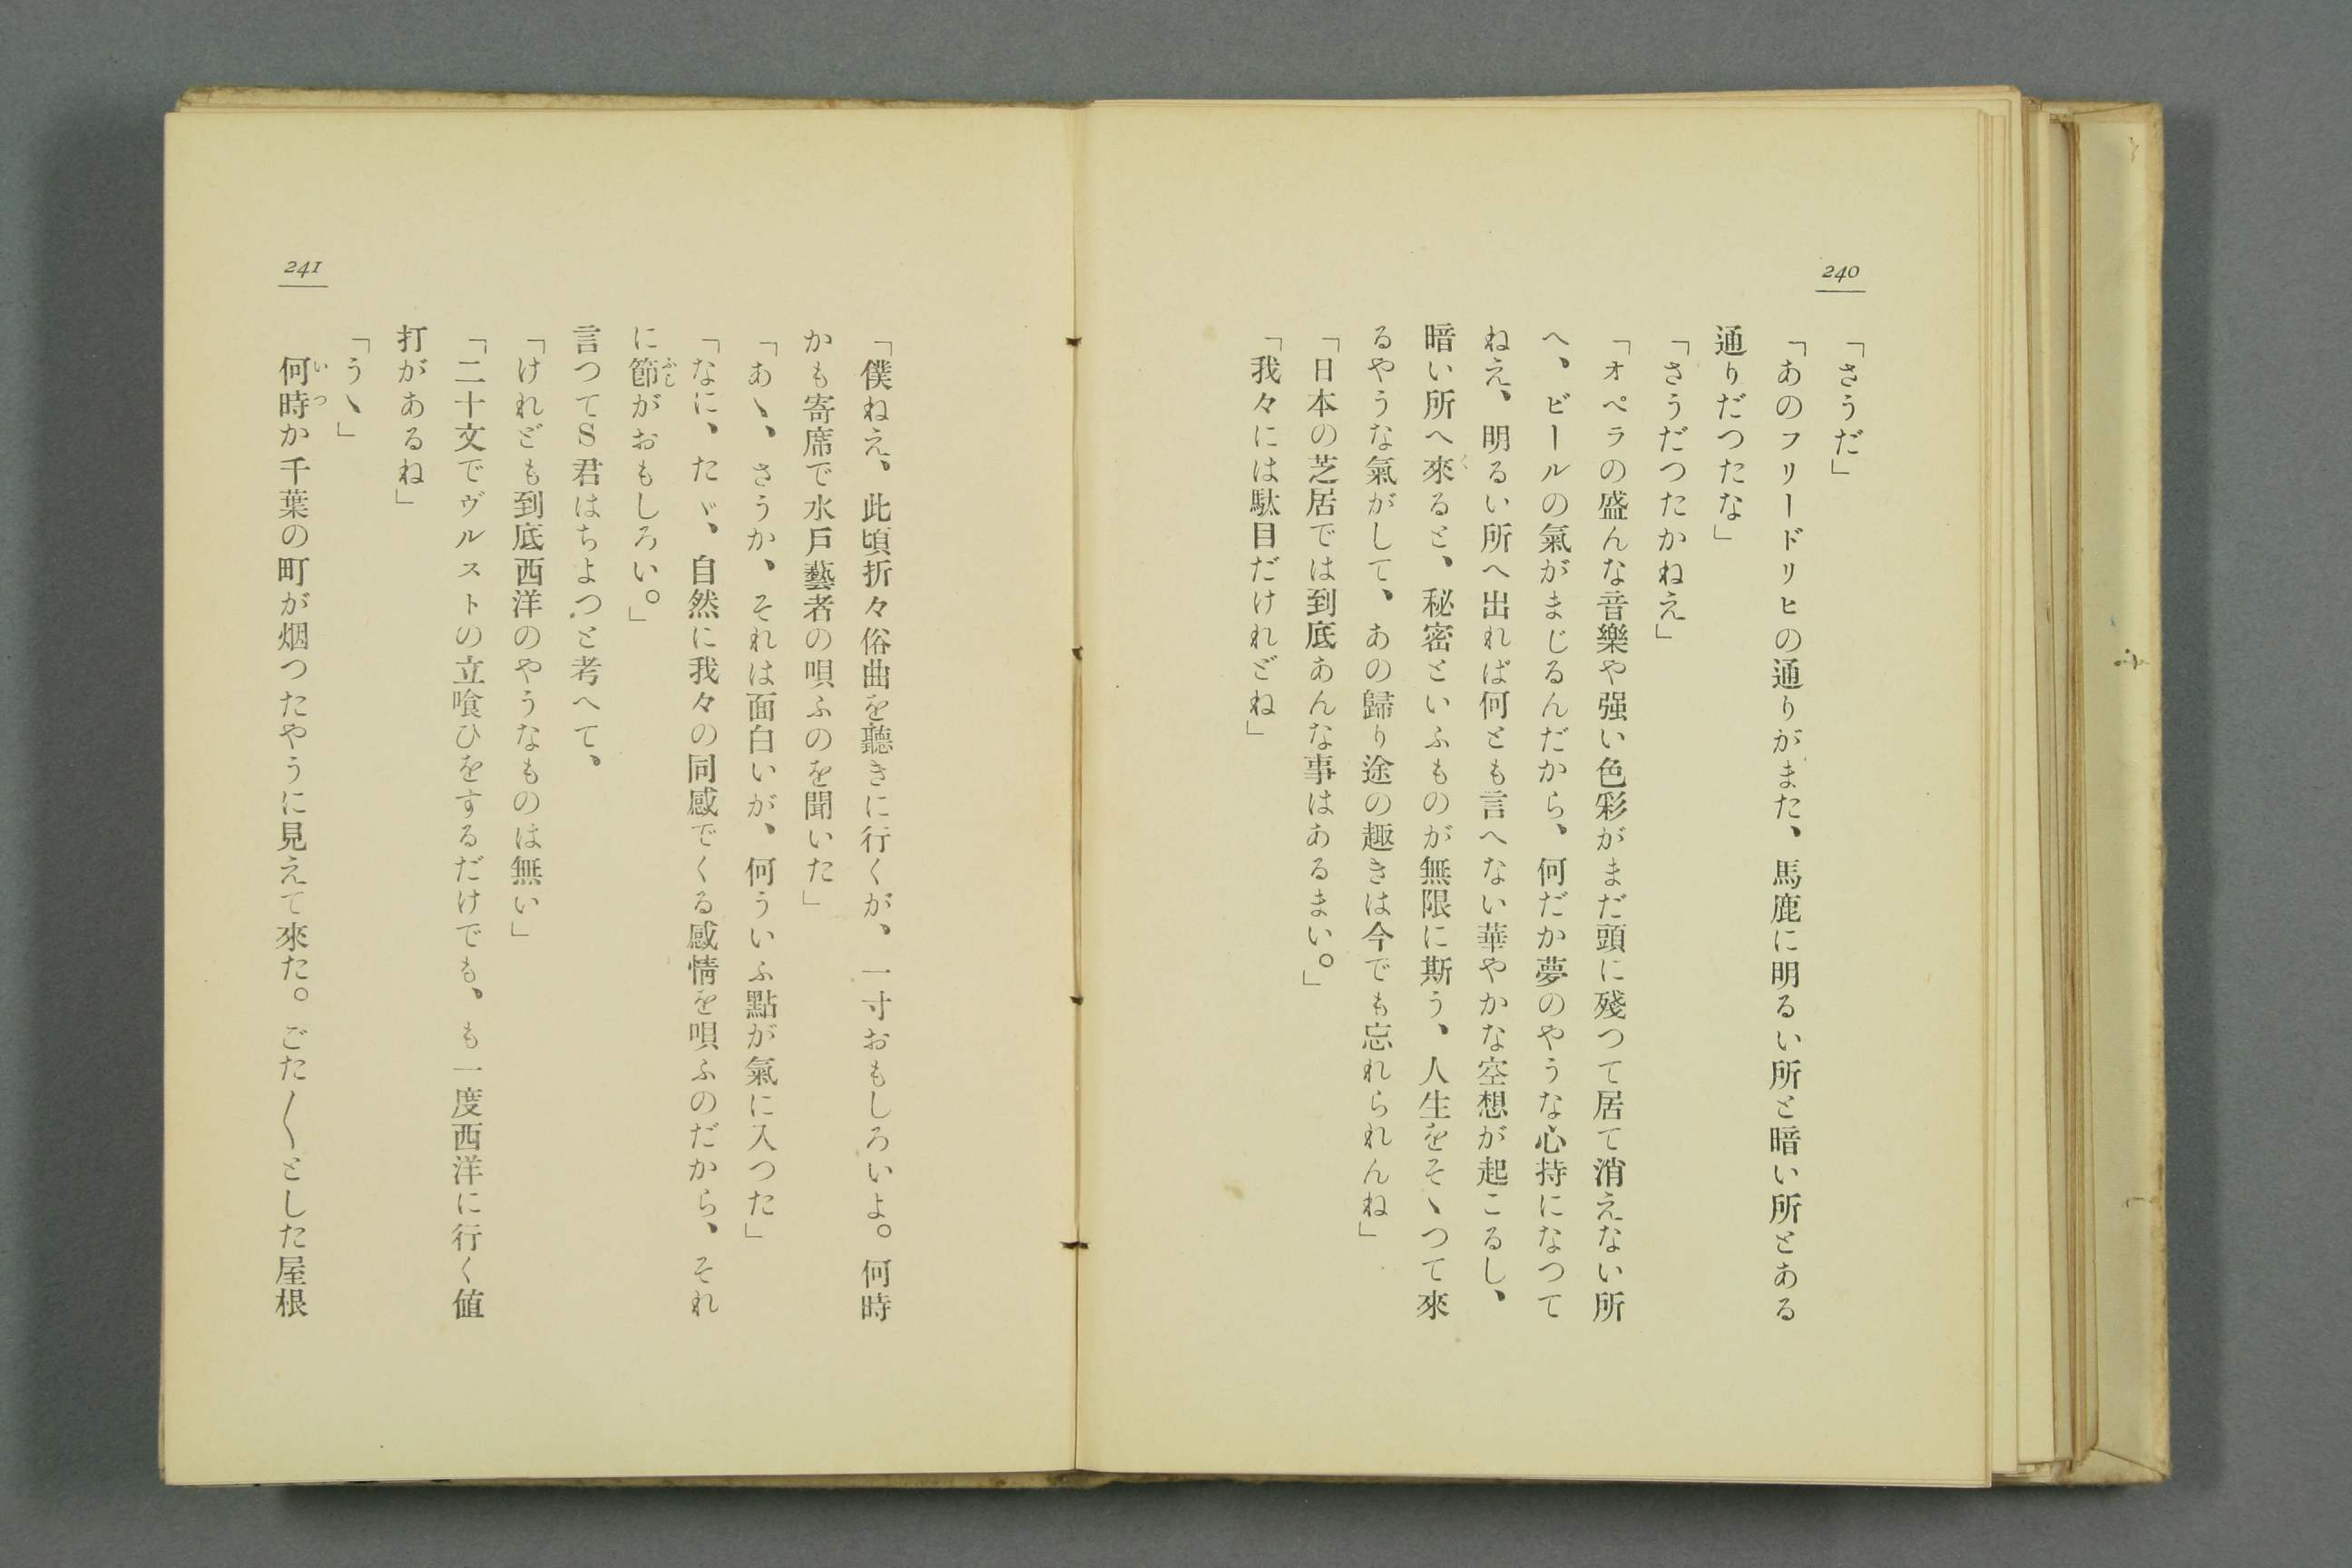 240
「さうだ」
「あのフリードリヒの通りがまた、馬鹿に明るい所と暗い所とある
通りだつたな」
「さうだつたかねえ」
「オペラの盛んな音樂や强い色彩がまだ頭に殘つて居て消えない所
へ、ビールの氣がまじるんだから、何だか夢のやうな心持になつて
ねえ、明るい所へ出れば何とも言へない華やかな空想が起こるし、
暗い所へ來ると、秘密といふものが無限に斯う、人生をそゝつて來
るやうな氣がして、あの歸り途の趣きは今でも忘れられんね」
「日本の芝居では到底あんな事はあるまい。」
「我々には駄目だけれどね」
241
「僕ねえ、此頃折々俗曲を聽きに行くが、一寸おもしろいよ。何時
かも寄席で水戶藝者の唄ふのを聞いた」
「あゝ、さうか、それは面白いが、何ういふ點が氣に入つた」
「なに、たゞ、自然に我々の同感でくる感情を唄ふのだから、それ
に節がおもしろい。」
言つてS君はちよつと考へて、
「けれども到底西洋のやうなものは無い」
「二十文でヴルストの立喰ひをするだけでも、も一度西洋に行く値
打があるね」
「うゝ」
何時か千葉の町が烟つたやうに見えて來た。ごた〱とした屋根